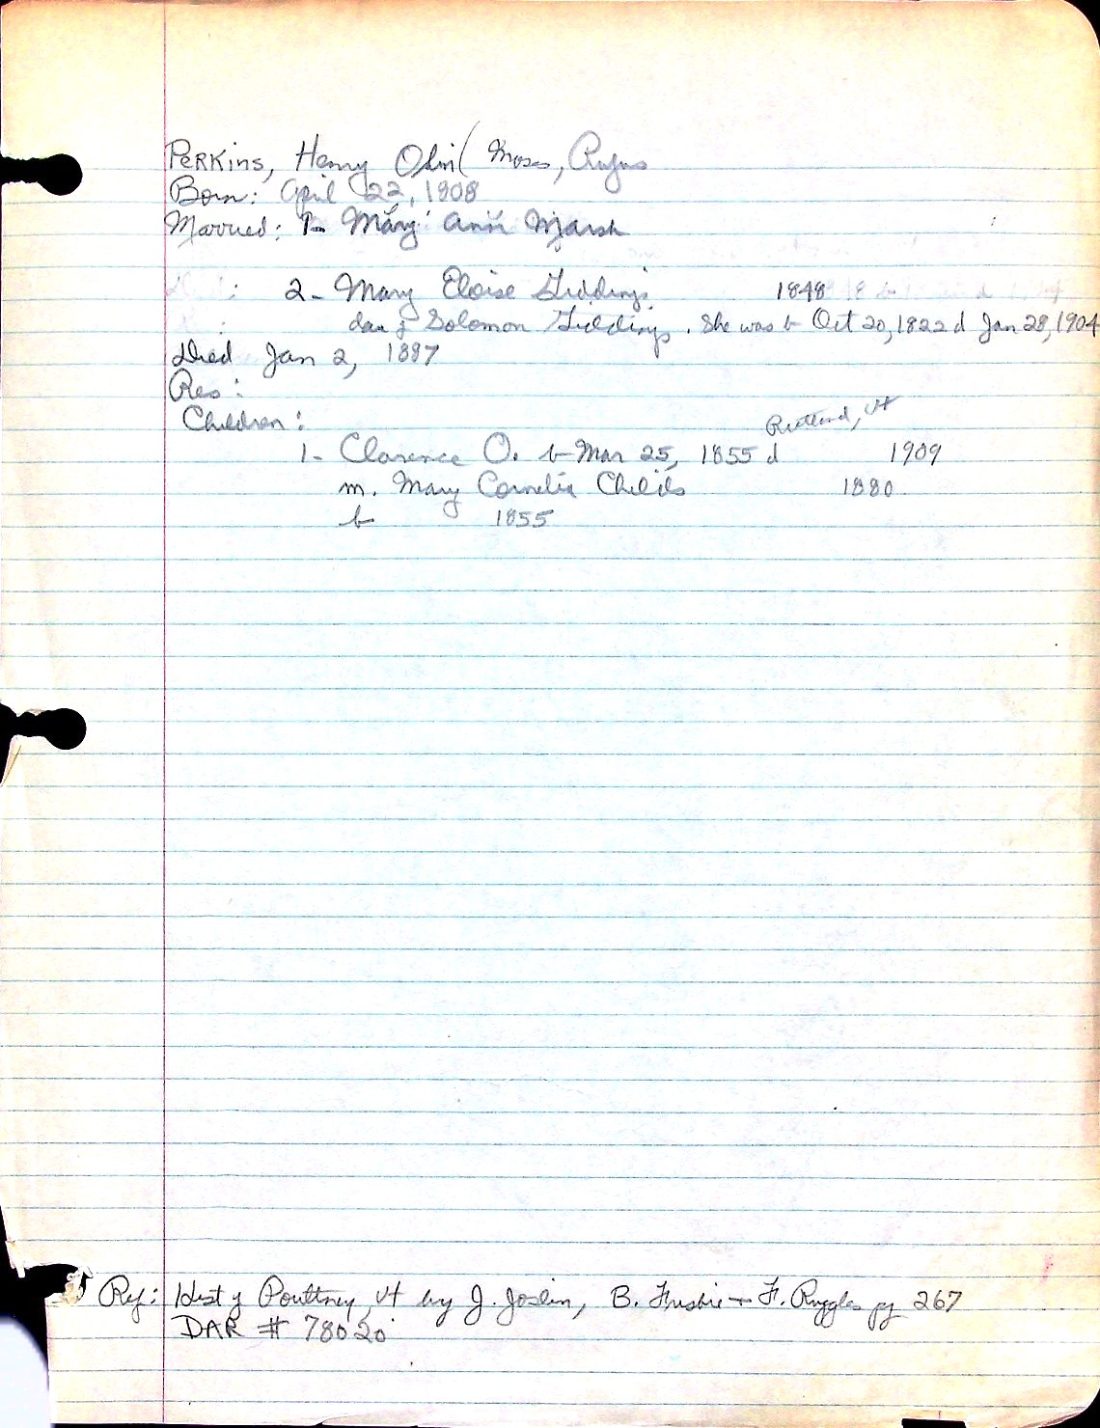 PERKins, Henry Olin ( Moses, Rufus
Born: April 22, 1808
Married: 1- Mary Ann Marsh
2- Mary Eloise Giddings 1848
dau of Solomon Giddings. She was b Oct 20, 1822 d Jan 28, 1904
Died Jan 2, 1887
Res:
Children:
Rutland, Vt
1- Clarence O. b Mar 25, 1855 d 1909
m. Mary Cornelia Childs 1880
b 1855
Ref: Hist of Poultney, Vt by J. Joslin, B. Frisbie + F. Ruggles pg 267
DAR # 78020